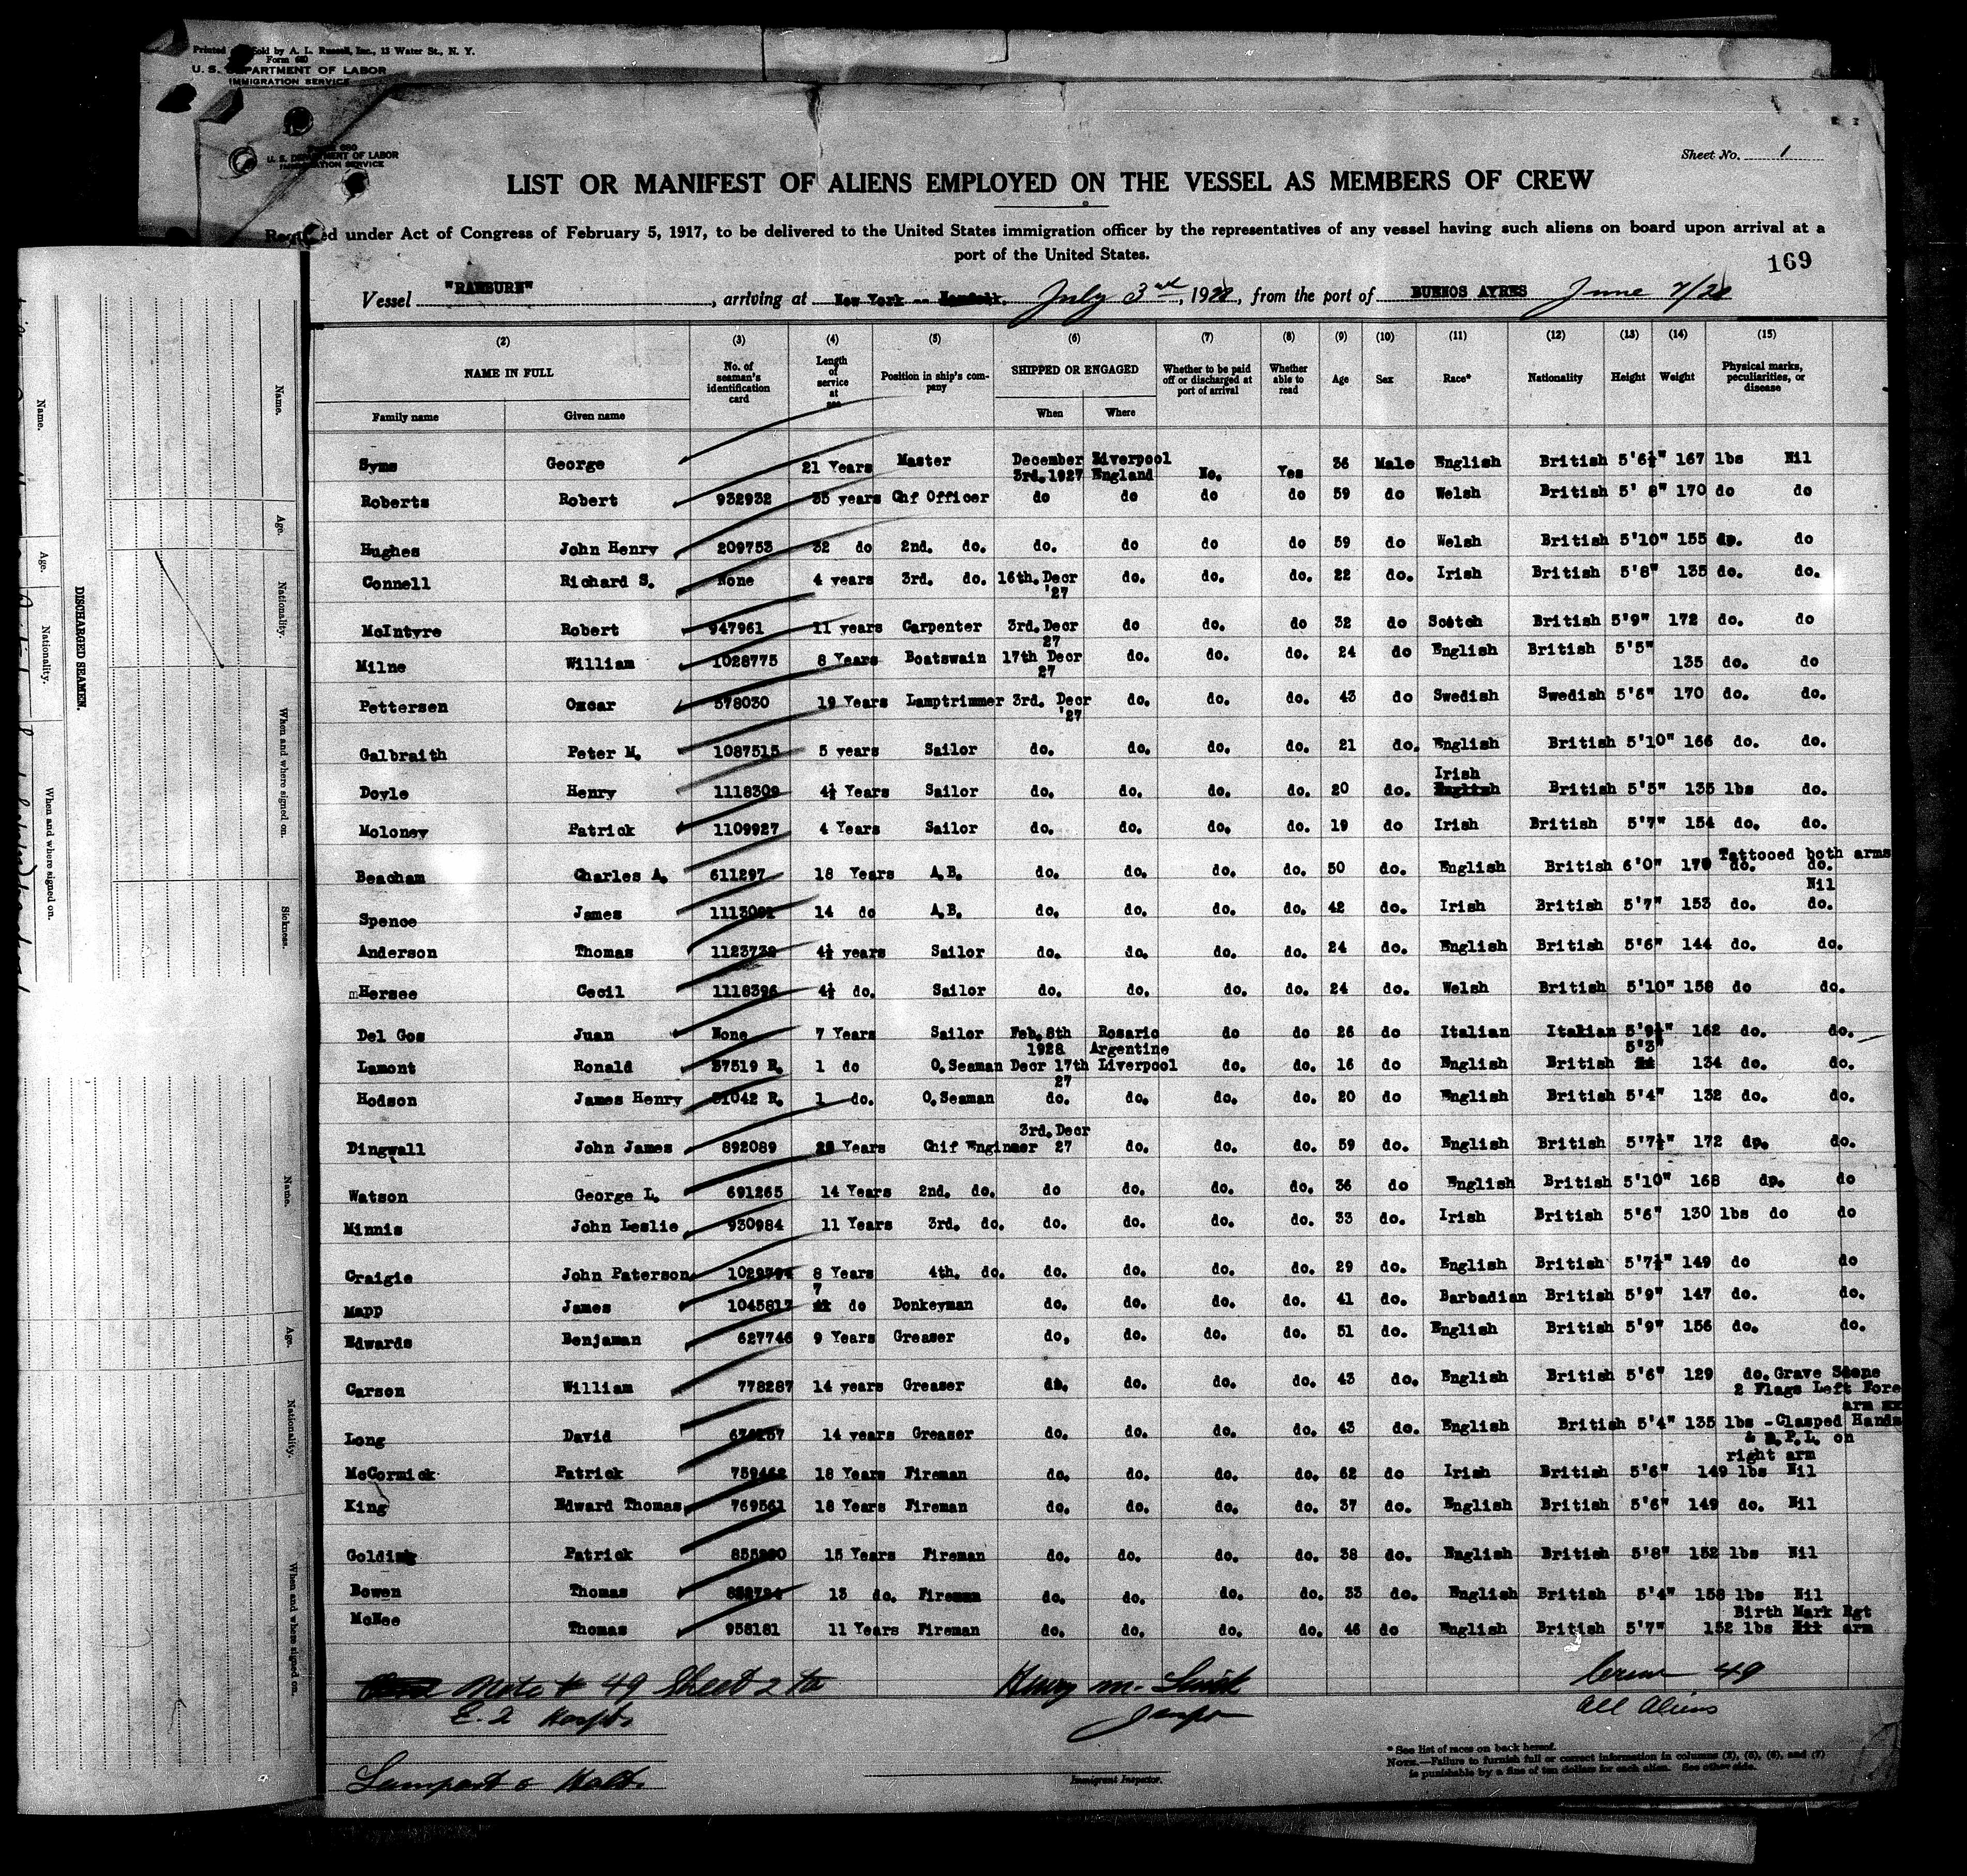 Printed Sold by A. L. Russell, Inc., 13 Water St., N. Y.
Form 680
U. S. DEPARTMENT OF LABOR
IMMIGRATION SERVICE
680
U. S. DEPARTMENT OF LABOR
IMMIGRATION SERVICE
Sheet No. 1
LIST OR MANIFEST OF ALIENS EMPLOYED ON THE VESSEL AS MEMBERS OF CREW
Required under Act of Congress of February 5, 1917, to be delivered to the United States immigration officer by the representatives of any vessel having such aliens on board upon arrival at a
port of the United States.
169
Vessel , arriving at New York July 3rd, 1928, from the port of BUENOS AYRES June 7/28
(2) (3) (4) (5) (6) (7) (8) (9) (10) (11) (12) (13) (14) (15)
NAME IN FULL No. of seaman's identification card Length of service at sea Position in ship's company SHIPPED OR ENGAGED Whether to be paid off or discharged at port of arrival Whether able to read Age Sex Race* Nationality Height Weight Physical marks, peculiarities, or disease
Family name Given name When Where
Syms George 21 Years Master December 3rd. 1927 Liverpool England No. Yes 36 Male English British 5'6½" 167 lbs Nil
Roberts Robert 932932 35 years Chf Officer do do do do 59 do Welsh British 5' 8" 170 do do
Hughes John Henry 209753 32 do 2nd. do. do. do do do 59 do Welsh British 5'10" 155 do. do
Connell Richard S. None 4 years 3rd. do. 16th. Decr '27 do. do. do. 22 do. Irish British 5'8" 135 do. do.
McIntyre Robert 947961 11 years Carpenter 3rd. Decr 27 do do. do 32 do Scotch British 5'9" 172 do. do
Milne William 1028775 8 Years Boatswain 17th Decr 27 do. do. do. 24 do English British 5'5" 135 do. do
Pettersen Oscar 578030 19 Years Lamptrimmer 3rd. Decr '27 do. do. do. 43 do Swedish Swedish 5'6" 170 do. do.
Galbraith Peter M. 1087515 5 years Sailor do. do. do. do. 21 do. English British 5'10" 166 do. do.
Doyle Henry 1118309 4½ Years Sailor do. do. do. do. 20 do. Irish English British 5'5" 135 lbs do.
Moloney Patrick 1109927 4 Years Sailor do. do. do. do. 19 do Irish British 5'7" 154 do. do.
Beacham Charles A. 611297 18 Years A.B. do. do. do. do. 50 do. English British 6'0" do. Tattooed both arms do.
Spence James 14 do A.B. do. do. do. do. 42 do. Irish British 5'7" 153 do. Nil do.
Anderson Thomas 4½ years Sailor do. do. do. do. 24 do. English British 5'6" 144 do. do.
Hersee Cecil 1118396 4½ do. Sailor do. do. do. do. 24 do. Welsh British 5'10" 158 do do.
Del Gos Juan None 7 Years Sailor Feb. 8th 1928 Rosario Argentine do do 26 do Italian Italian 5'9½" 162 do. do.
Lamont Ronald 37519 R. 1 do O. Seaman Decr 17th 27 Liverpool do. do. 16 do English British 5'3" 134 do. do.
Hodson James Henry 31042 R. 1 do. O. Seaman do. do. do. do. 20 do. English British 5'4" 132 do. do.
Dingwall John James 892089 Years Chif Engineer 3rd. Decr 27 do. do. do. 59 do. English British 5'7½" 172 do. do.
Watson George L. 691265 14 Years 2nd. do. do do. do. do. 36 do English British 5'10" 168 do. do
Minnis John Leslie 930984 11 Years 3rd. do. do. do. do. do. 33 do. Irish British 5'6" 130 lbs do do
Craigie John Paterson 8 Years 4th. do. do. do. do. do. 29 do. English British 5'7½" 149 do do
Mapp James 1045817 7 do Donkeyman do. do. do. do. 41 do. Barbadian British 5'9" 147 do. do.
Edwards Benjaman 627746 9 Years Greaser do. do. do. do. 51 do. English British 5'9" 156 do. do.
Carson William 778287 14 years Greaser do. do. do. do. 43 do. English British 5'6" 129 do. Grave Stone 2 Flags Left Fore arm
Long David 14 years Greaser do. do. do. do. 43 do. English British 5'4" 135 lbs - Clasped Hands & on right arm
McCormick Patrick 759462 18 Years Fireman do. do. do. do. 62 do Irish British 5'6" 149 lbs Nil
King Edward Thomas 769561 18 Years Fireman do. do. do. do. 37 do. English British 5'6" 149 do. Nil
Golding Patrick 15 Years Fireman do. do. do. do. 38 do. English British 5'8" 152 lbs Nil
Bowen Thomas 13 do. Fireman do. do. do. do. 33 do. English British 5'4" 158 lbs Nil
McNee Thomas 958181 11 Years Fireman do. do. do. do. 46 do English British 5'7" 152 lbs Birth Mark Rgt arm
Note # 49 Sheet 2
Henry M.
Crew 49
E. 2 Hospt.
All Aliens
Lamport & Holt.
Immigrant Inspector.
* See list of races on back hereof.
NOTE.—Failure to furnish full or correct information in columns (2), (5), (6), and (7)
is punishable by a fine of ten dollars for each alien. See other side.
DISCHARGED SEAMEN.
Name. Age. Nationality. When and where signed on.
Name. Age. Nationality. When and where signed on. Sickness.
Name. Age. Nationality. When and where signed on.